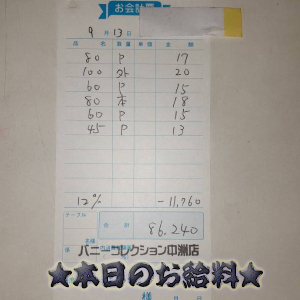 お会計票
9月13日
品名 数量 単価 金額
80 P 17
100 外 20
60 P 15
80 本 18
60 P 15
45 P 13
12% -11,760
テーブル
合計 86,240
バニーコレクション中洲店
★本日のお給料★
様 月 日